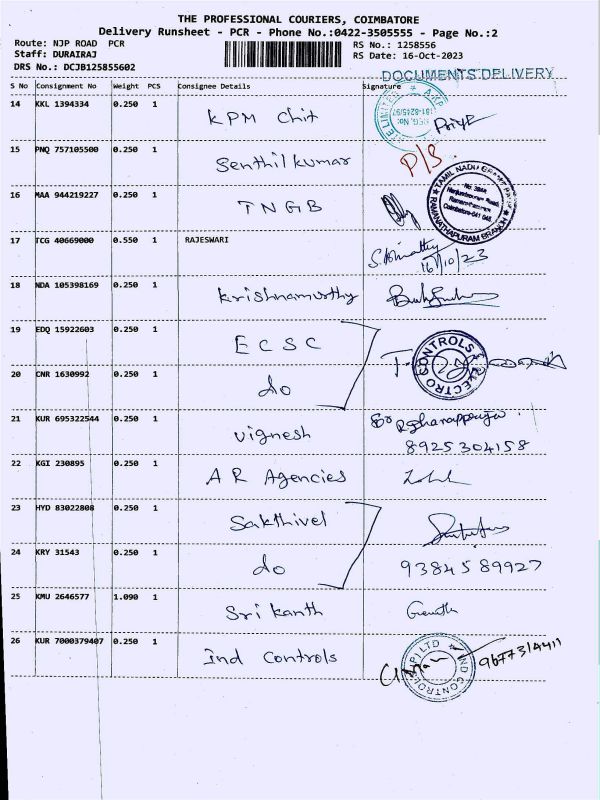 THE PROFESSIONAL COURIERS, COIMBATORE
Delivery Runsheet - PCR - Phone No.:0422-3505555 - Page No.:2
Route: NJP ROAD PCR
RS No.: 1258556
Staff: DURAIRAJ
RS Date: 16-Oct-2023
DRS No.: DCJB125855602
DOCUMENTS DELIVERY
S No Consignment No Weight PCS Consignee Details Signature
14 KKL 1394334 0.250 1 KPM Chit Priya
15 PNQ 757105500 0.250 1 Senthil kumar P/B
16 MAA 944219227 0.250 1 TNGB
TAMIL NADU
RAMANATHAPURAM BRANCH
17 TCG 40669000 0.550 1 RAJESWARI
16/10/23
18 NDA 105398169 0.250 1 Krishnamurthy
19 EDQ 15922603 0.250 1 ECSC
CONTROLS
ELECTRO
20 CNR 1630992 0.250 1 do
21 KUR 695322544 0.250 1 Vignesh
8925304158
22 KGI 230895 0.250 1 A R Agencies
23 HYD 83022808 0.250 1 Sakthivel
24 KRY 31543 0.250 1 do 9384589927
25 KMU 2646577 1.090 1 Srikanth
26 KUR 7000379407 0.250 1 Ind Controls
IND CONTROLS (P) LTD
9677314411